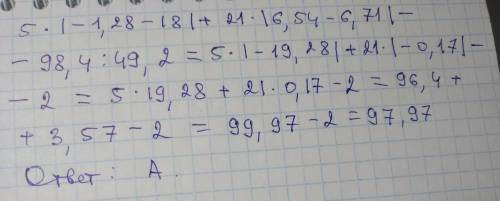 5 · |-1,28-18| + 21 · |6,54-6,71| -
- 98,4 : 49,2 = 5 · |-19,28| + 21 · |-0,17| -
- 2 = 5 · 19,28 + 21 · 0,17 - 2 = 96,4 +
+ 3,57 - 2 = 99,97 - 2 = 97,97
Ответ: А.